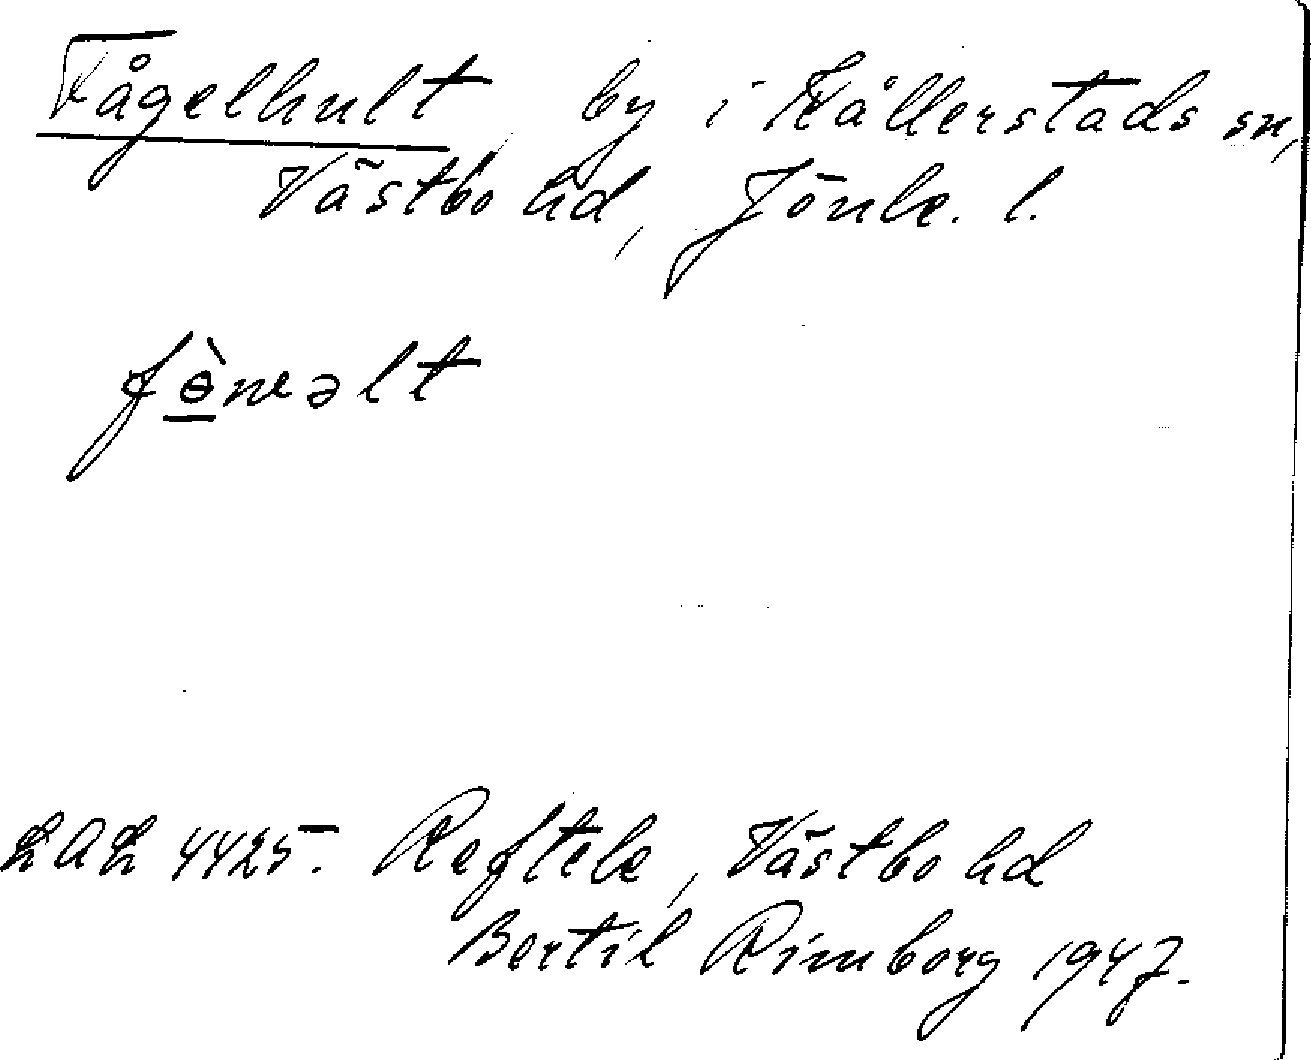 Fågelhult, by i Kållerstads sn,
Västbo hd, Jönk. l.
fɵ̀wəlt
LAL 4425. Reftele, Västbo hd
Bertil Rimborg 1947.